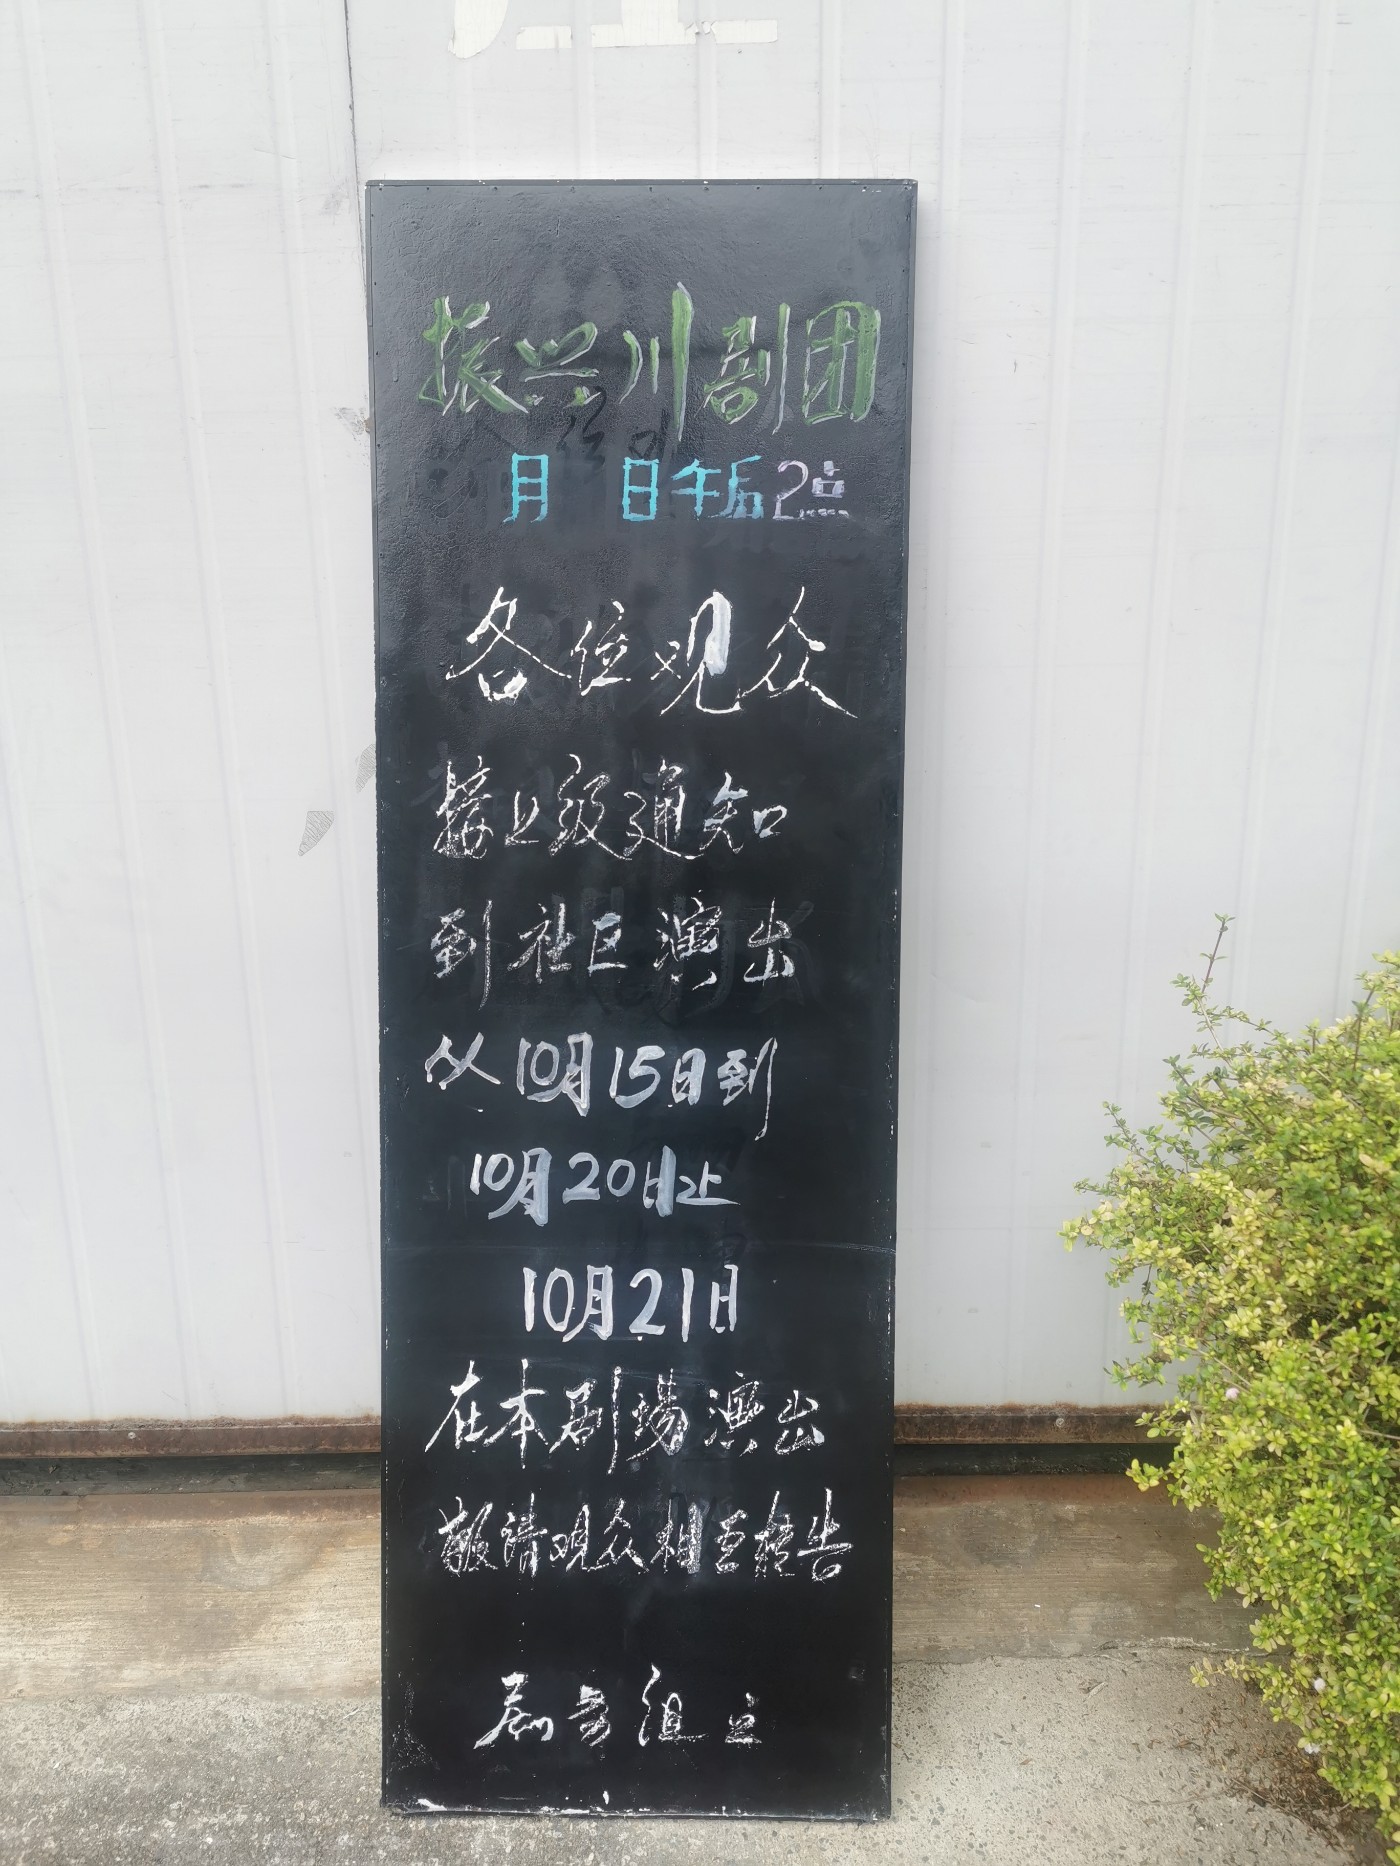 振兴川剧团
月 日午后2点
各位观众
接上级通知
到社区演出
从10月15日到
10月20日止
10月21日
在本剧场演出
敬请观众相互转告
剧务组